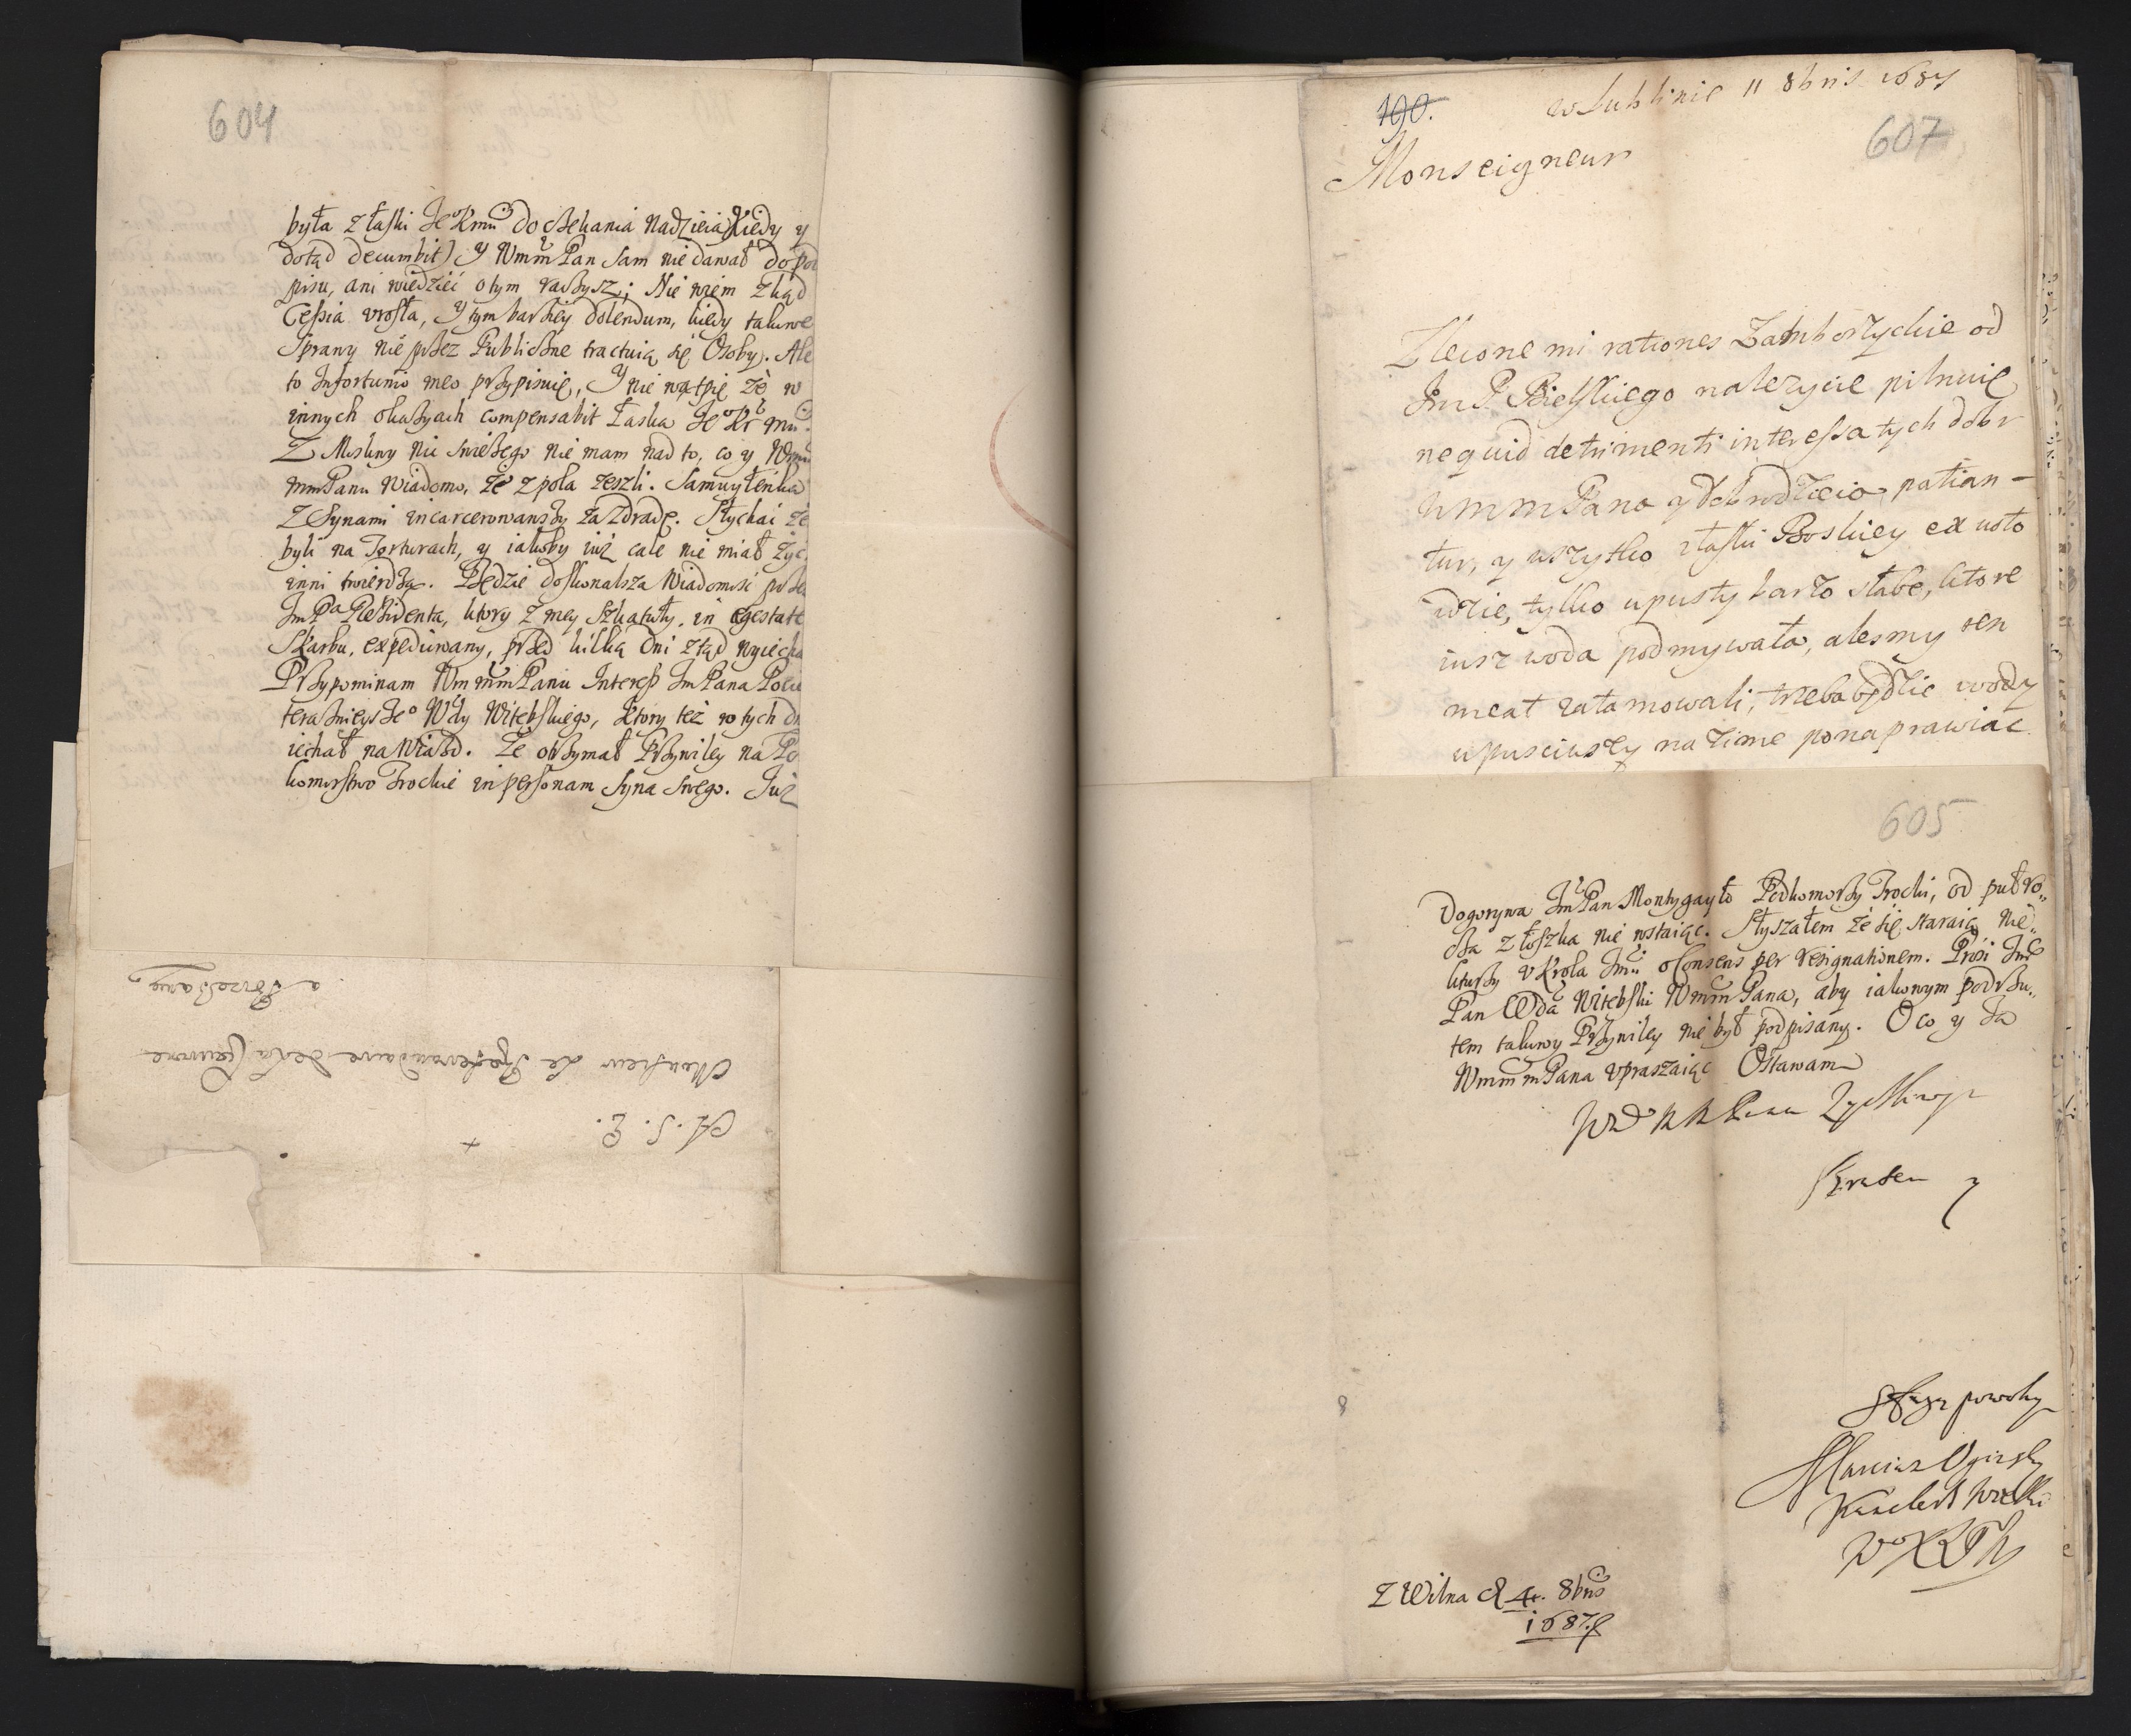 604
była z łaski Je° Kmći doczekania Nadzieia (kiedy y
dotąd decumbit) y WmmPan Sam nie dawał do pod
pisu, ani wiedzieć o tym raczysz; Nie wiem zkąd
Cessia vrosła, y tym barziey dolendum, kiedy takowe
Sprawy nie przez Publiczne tractuią się Osoby. Ale
to Infortunio meo przypisuię, y nie wątpię że w
innych okazyach compensabit Łaska Je° Kr mći.
Z Moskwy nic świeżego nie mam nad to, co y Wmm
mmPanu wiadomo, że z pola zeszli. Samuyłenko
z Synami incarcerowanszy za Zdradę. Słychać że
byli na Torturach, y iakoby iuż cale nie miał żyć
inni twierdzą. Będzie doskonalsza wiadomość przez
Im Pa Residenta, ktory z mey szkatuły, in egestate
Skarbu, expediowany, przed kilką dni ztąd wyiecha
Przypominam WmmmPanu Interess Im Pana Pocie
teraznieysze° Wdy Witebskiego, ktory też w tych dn
iechał na Wiazd. Że otrzymał Przywiley na Po
komorstwo Trockie in personam Syna swego. Już
a Warszawa
Monsieur le Referendaire de la Couronne
A. S. E.
190.
w Lublinie 11 8bris 1687
607
Monseigneur
Zlecone mi rationes Zamborzyckie od
Im P. Bielskiego należycie pilnuię
ne quid detrimenti interessa tych dobr
WmmPana y Dobrodzieia patian-
tur, y wszytko z łaski Boskiey ex voto
idzie, tylko upusty barzo słabe, ktore
iusz woda podmywała, alesmy ten
meat zatamowali, trzeba będzie wody
upusciwszy na zime ponaprawiac
605
Dogorywa Im Pan Montygayło Podkomorzy Trocki, od puł ro„
cza z łoszka nie wstaiąc. Słyszałem że się staraią nie„
ktorzy v Krola Jmći o Consens per resignationem. Prosi Jmć
Pan Wda Witebski WmmPana, aby iakowym podrzu„
tem takowy Przywiley nie był podpisany. O co y Ja
WmmmPana vpraszaiąc Ostawam
Pana Zyczliwym
Bratem y
Sługą powolny
Marcian Oginski
Kanclerz Wielki
W° X L
Z Wilna d 4. 8bris
1687.